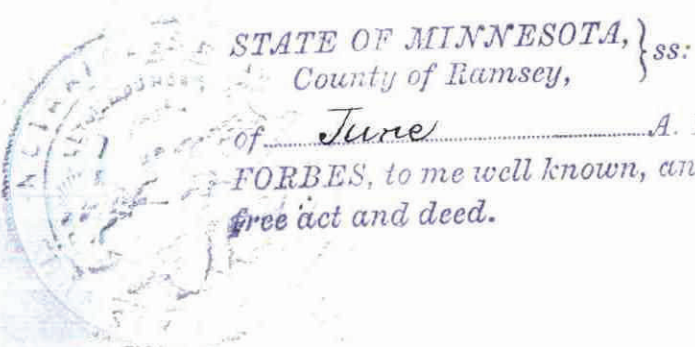 STATE OF MINNESOTA, } ss:
County of Ramsey,
of June A.
FORBES, to me well known, an
free act and deed.